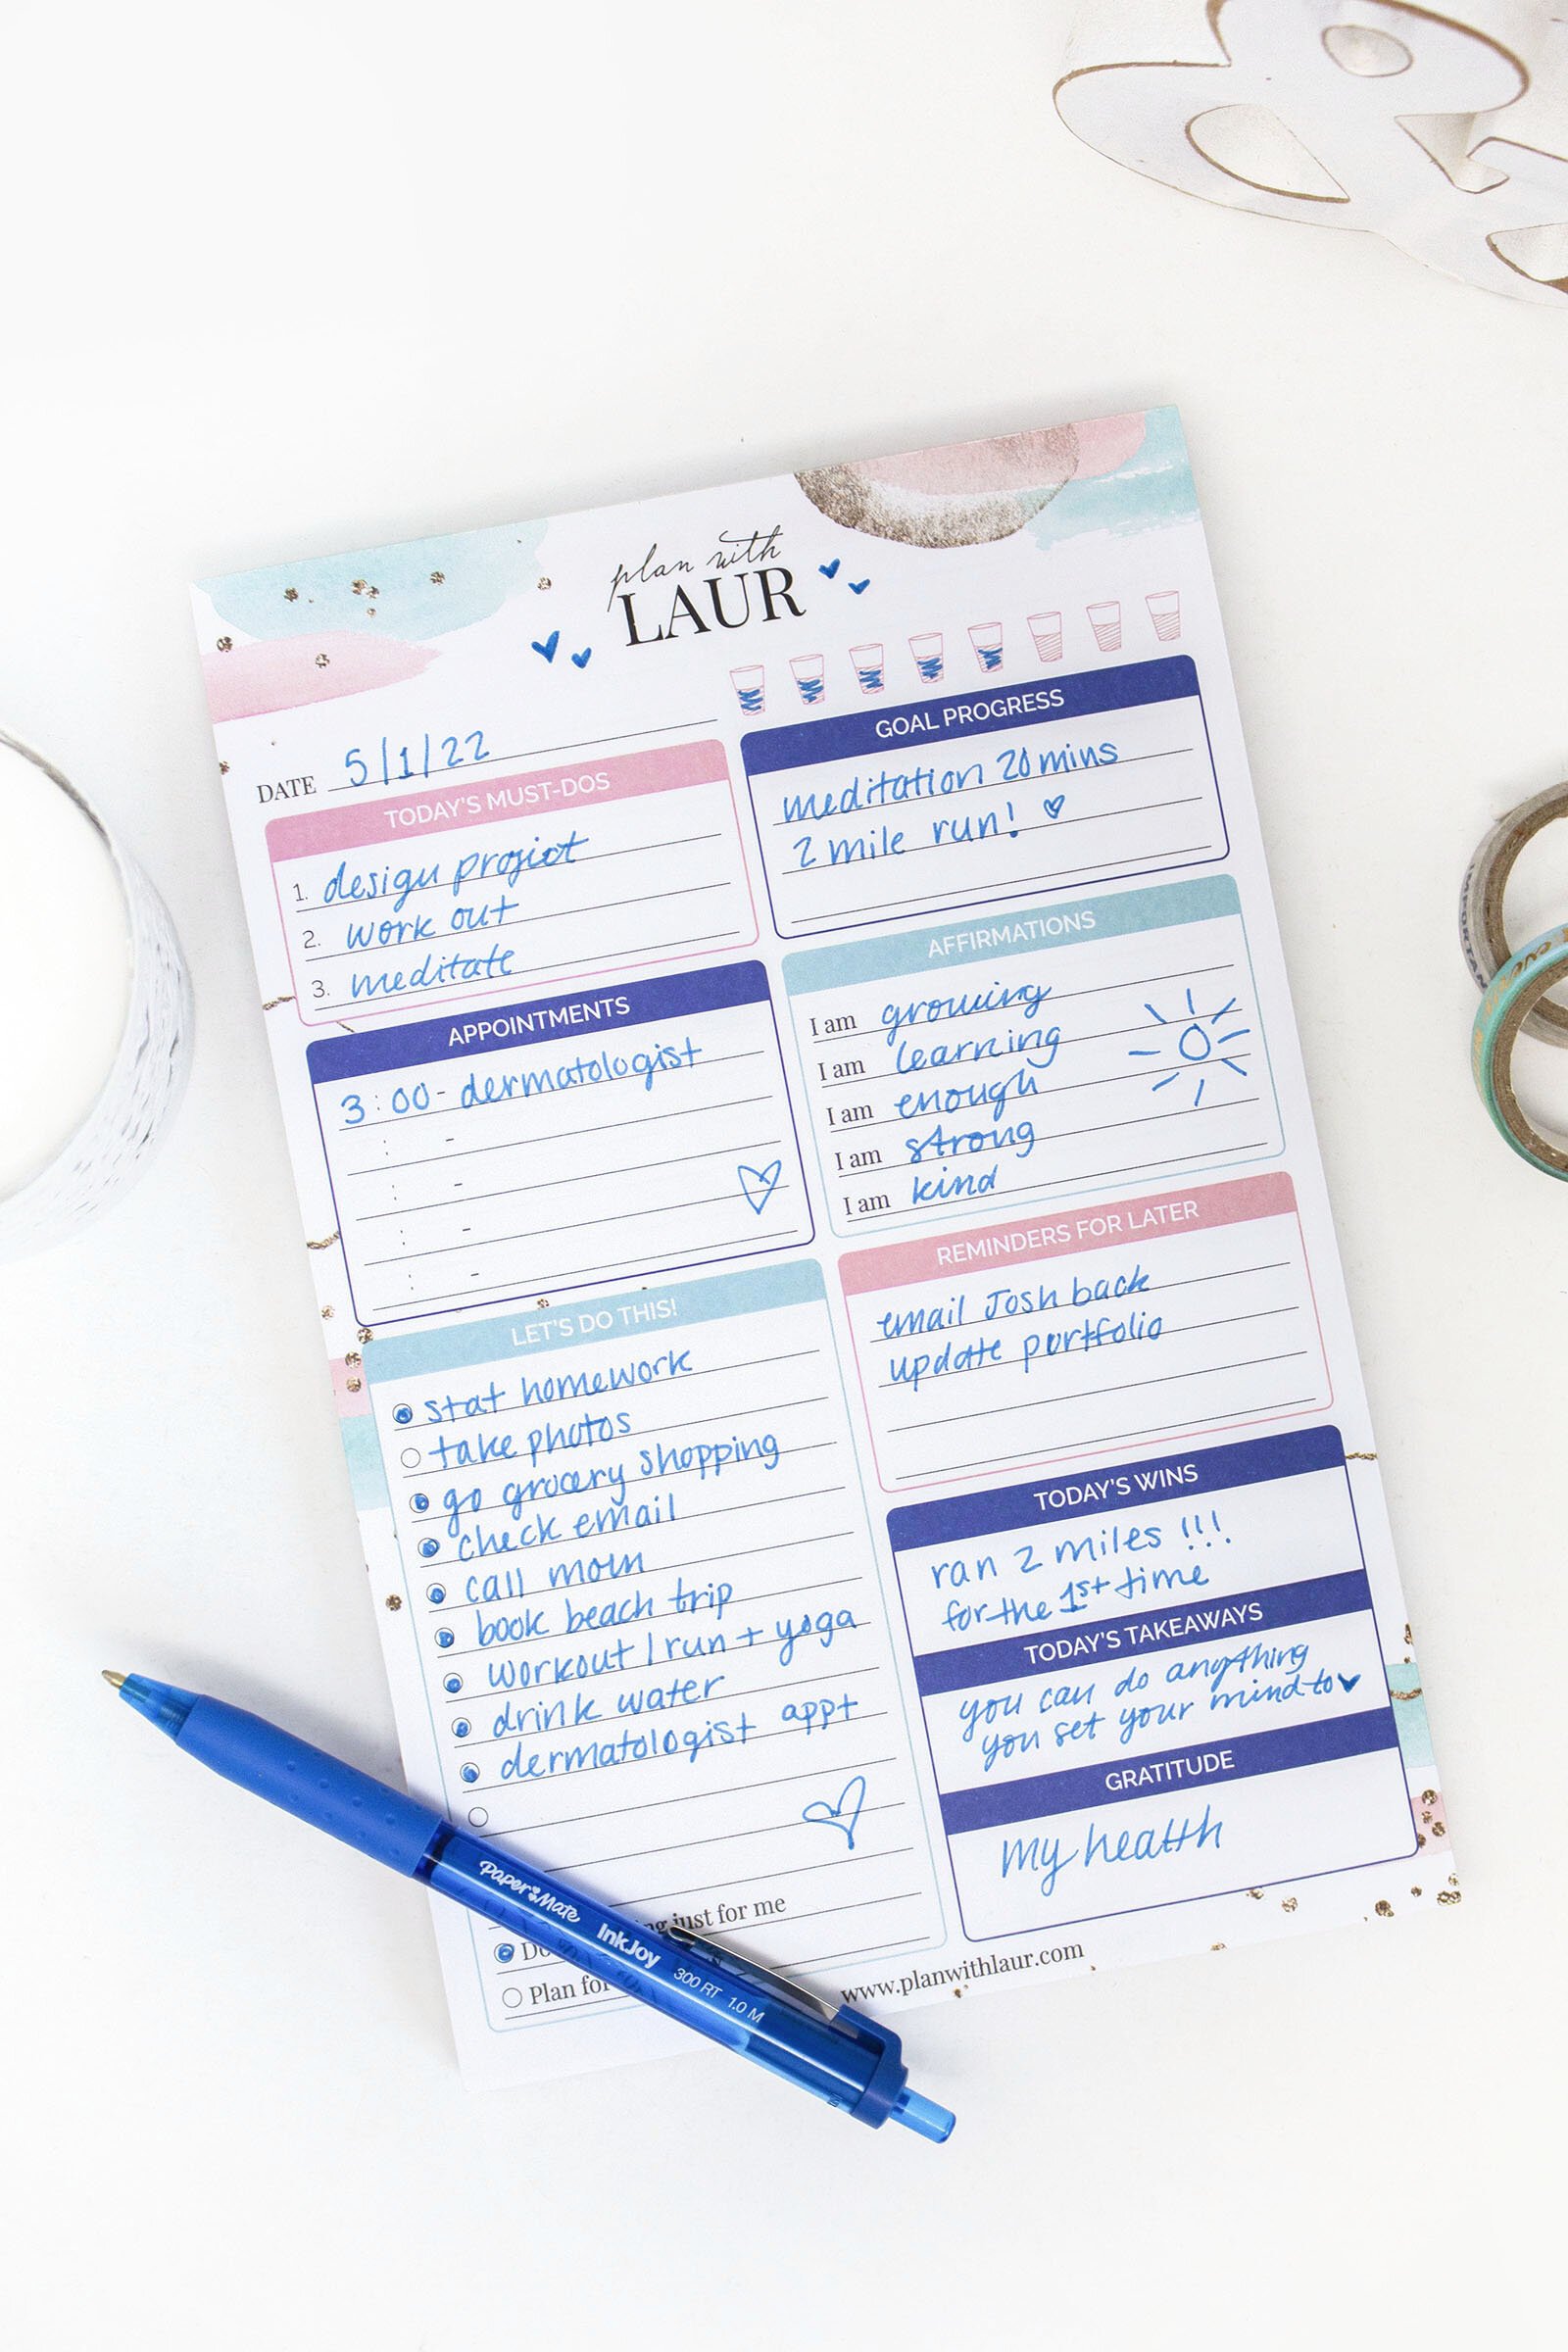 plan with
LAUR
DATE 5/1/22
TODAY'S MUST-DOS
1. design project
2. work out
3. meditate
APPOINTMENTS
3:00- dermatologist
: -
: -
: -
: -
LET'S DO THIS!
stat homework
take photos
go grocery shopping
check email
call mom
book beach trip
workout / run + yoga
drink water
dermatologist appt
just for me
Plan for
GOAL PROGRESS
meditation 20 mins
2 mile run!
AFFIRMATIONS
I am growing
I am learning
I am enough
I am strong
I am kind
REMINDERS FOR LATER
email Josh back
update portfolio
TODAY'S WINS
ran 2 miles !!!
for the 1st time
TODAY'S TAKEAWAYS
you can do anything
you set your mind to
GRATITUDE
my health
www.planwithlaur.com
Paper Mate InkJoy 300 RT 1.0 M